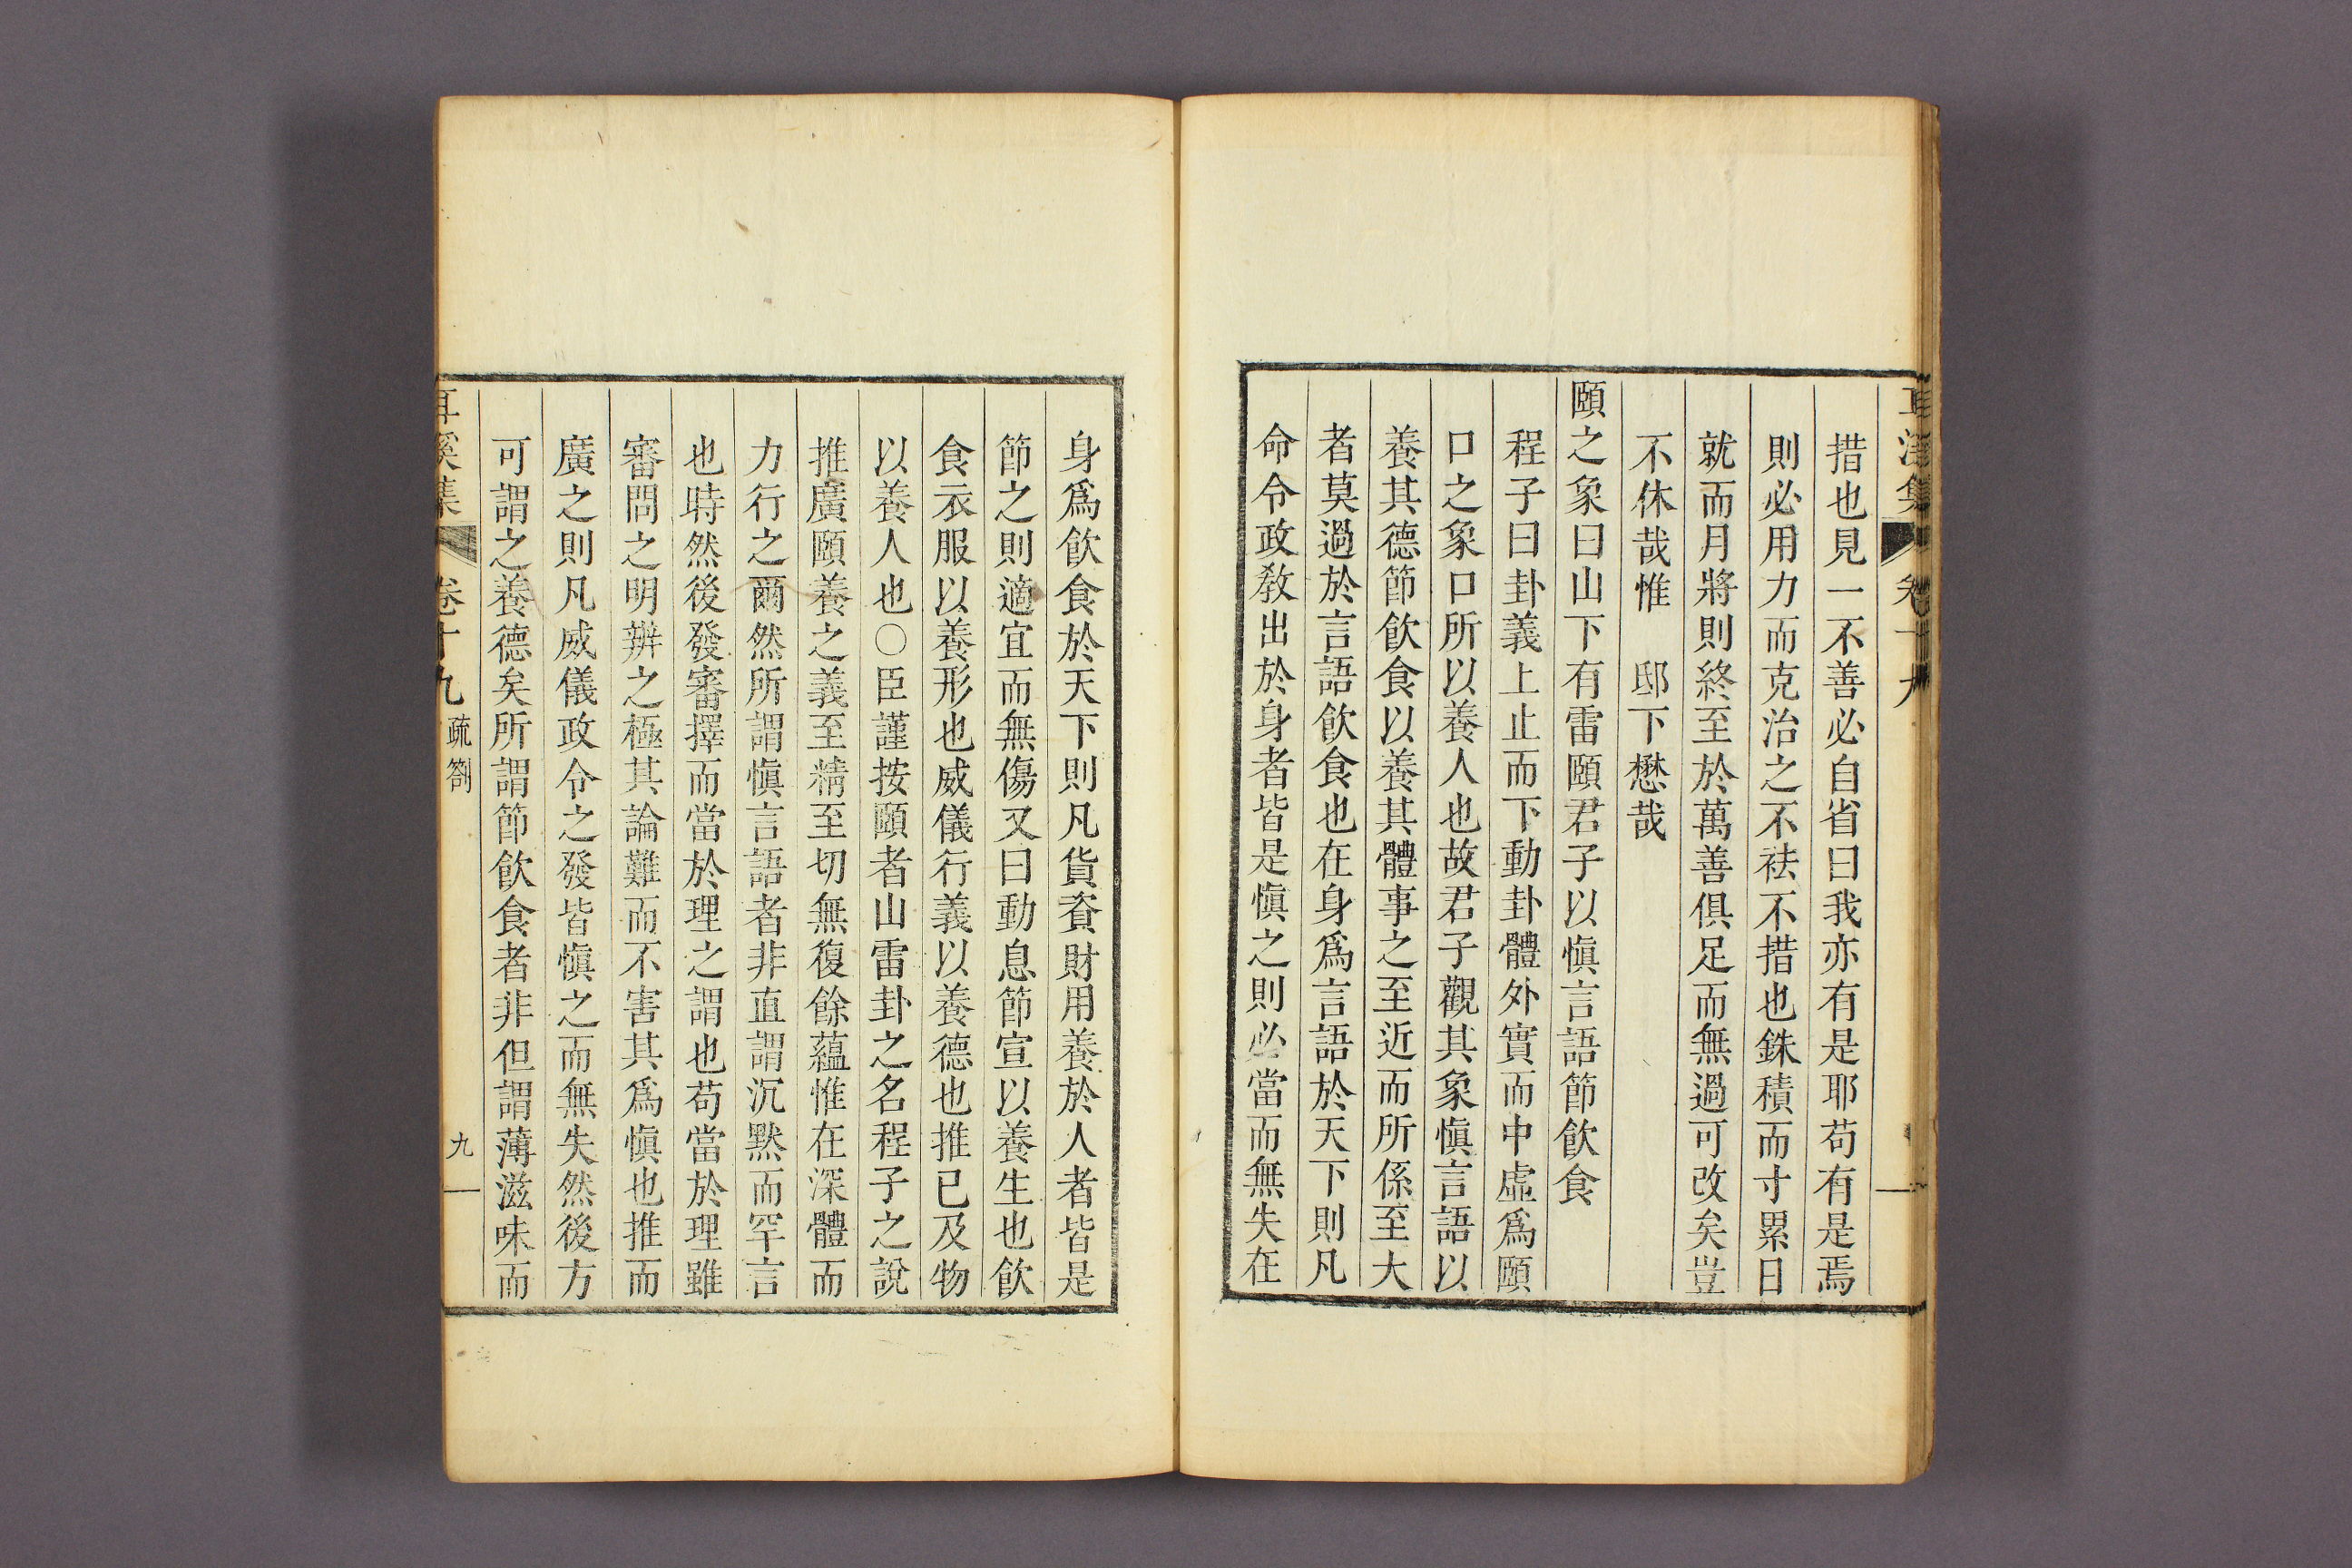 措也見一不善必自省曰我亦有是耶苟有是焉
則必用力而克治之不祛不措也銖積而寸累日
就而月將則終至於萬善俱足而無過可改矣豈
不休哉惟　邸下懋哉
頤之象曰山下有雷頤君子以愼言語節飮食
程子曰卦義上止而下動卦體外實而中虛爲頤
口之象口所以養人也故君子觀其象愼言語以
養其德節飮食以養其體事之至近而所係至大
者莫過於言語飮食也在身爲言語於天下則凡
命令政敎出於身者皆是愼之則必當而無失在
身爲飮食於天下則凡貨資財用養於人者皆是
節之則適宜而無傷又曰動息節宣以養生也飮
食衣服以養形也威儀行義以養德也推已及物
以養人也○臣謹按頤者山雷卦之名程子之說
推廣頤養之義至精至切無復餘蘊惟在深體而
力行之爾然所謂愼言語者非直謂沉默而罕言
也時然後發審擇而當於理之謂也苟當於理雖
審問之明辨之極其論難而不害其爲愼也推而
廣之則凡威儀政令之發皆愼之而無失然後方
可謂之養德矣所謂節飮食者非但謂薄滋味而
耳溪集 卷十九 疏劄 九